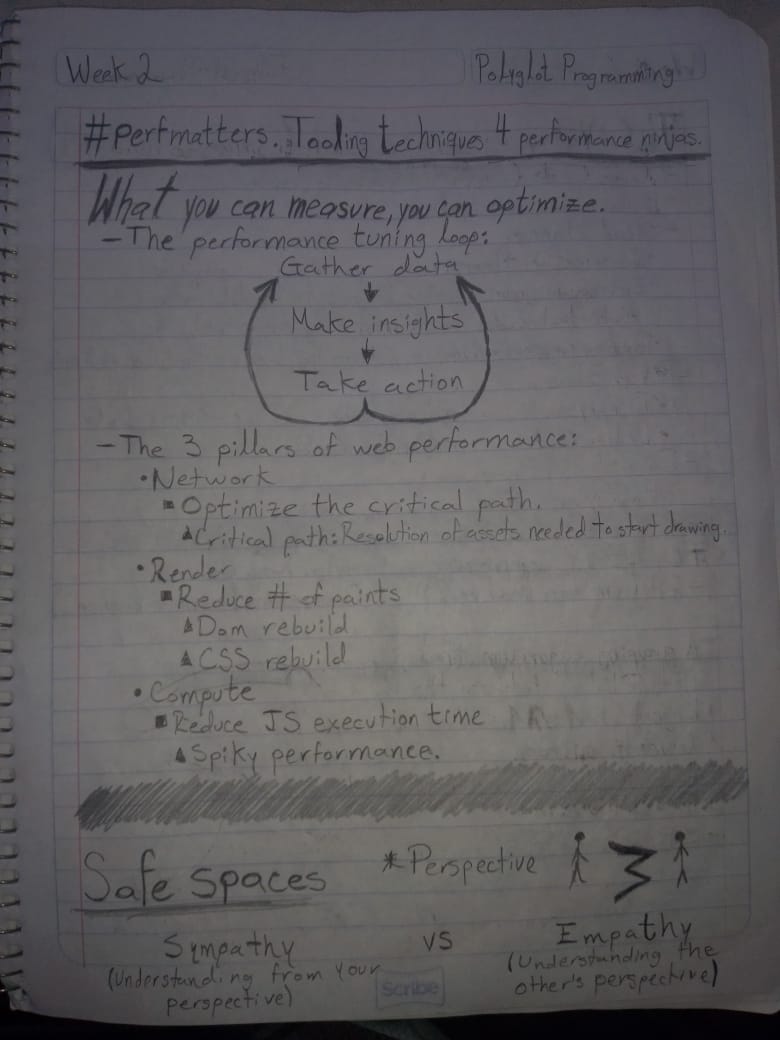 Week 2
Polyglot Programming
#perfmatters. Tooling techniques 4 performance ninjas.
What you can measure, you can optimize.
- The performance tuning loop:
Gather data
Make insights
Take action
- The 3 pillars of web performance:
• Network
■ Optimize the critical path.
▲ Critical path: Resolution of assets needed to start drawing.
• Render
■ Reduce # of paints
▲ Dom rebuild
▲ CSS rebuild
• Compute
■ Reduce JS execution time
▲ Spiky performance.
Safe spaces
* Perspective
Sympathy vs Empathy
(Understanding from your
perspective)
(Understanding the
other's perspective)
Scribe